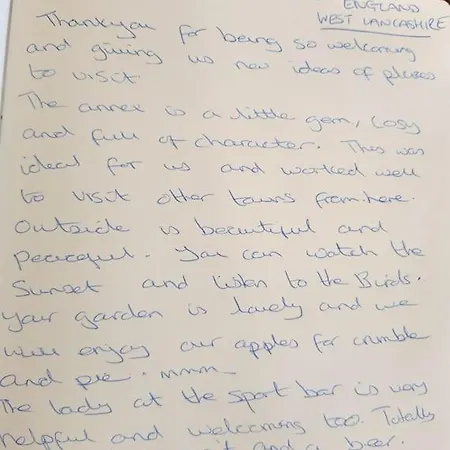 ENGLAND
WEST LANCASHIRE
Thankyou for being so welcoming
and giving us new ideas of places
to visit
The annex is a little gem, cosy
and full of character. This was
ideal for us and worked well
to visit other towns from here.
Outside is beautiful and
peaceful. You can watch the
Sunset and listen to the Birds.
Your garden is lovely and we
will enjoy our apples for crumble
and pie. mmm
The lady at the sport bar is very
helpful and welcoming too. Totally
it and a beer.